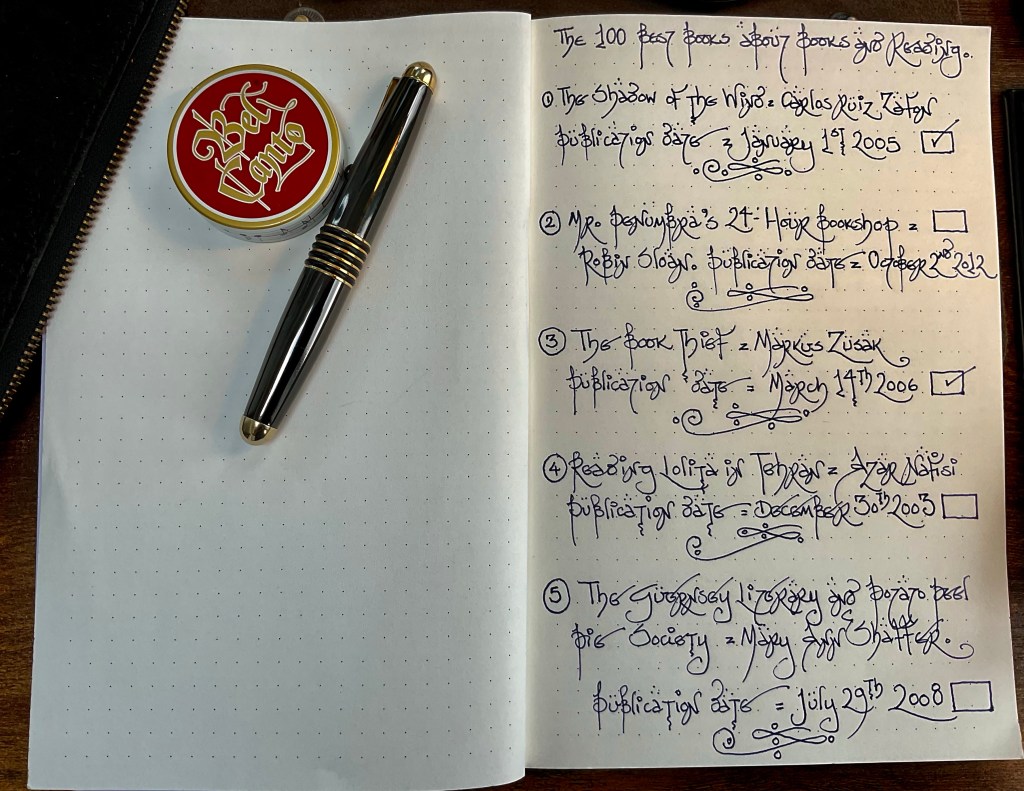 Bel
Canto
The 100 Best Books about Books and Reading.
① The Shadow of the Wind = Carlos Ruiz Zafon
publication date = January 1st 2005
② Mr. Penumbra's 24 Hour Bookshop =
Robin Sloan. publication date = October 2nd 2012
③ The Book Thief = Markus Zusak
publication date = March 14th 2006
④ Reading Lolita in Tehran = Azar Nafisi
publication date = December 30th 2003
⑤ The Guernsey Literary and Potato peel
pie Society = Mary Ann Shaffer.
publication date = July 29th 2008